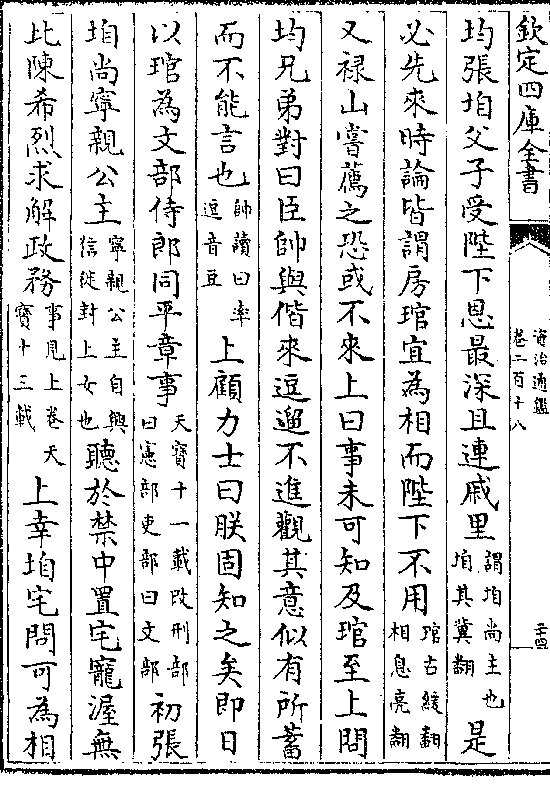 欽定四庫全書
資治通鑑
卷二百十八
二十四
均張垍父子受陛下恩最深且連戚里謂垍尚主也垍其冀翻是
必先來時論皆謂房琯宜為相而陛下不用琯古緩翻相息亮翻
又禄山嘗薦之恐或不來上曰事未可知及琯至上問
均兄弟對曰臣帥與偕來逗遛不進觀其意似有所蓄
而不能言也帥讀曰率逗音豆上顧力士曰朕固知之矣即日
以琯為文部侍郎同平章事天寶十一載改刑部曰憲部吏部曰文部初張
垍尚寧親公主寧親公主自興信徙封上女也聽於禁中置宅寵渥無
比陳希烈求解政務事見上卷天寶十三載上幸垍宅問可為相